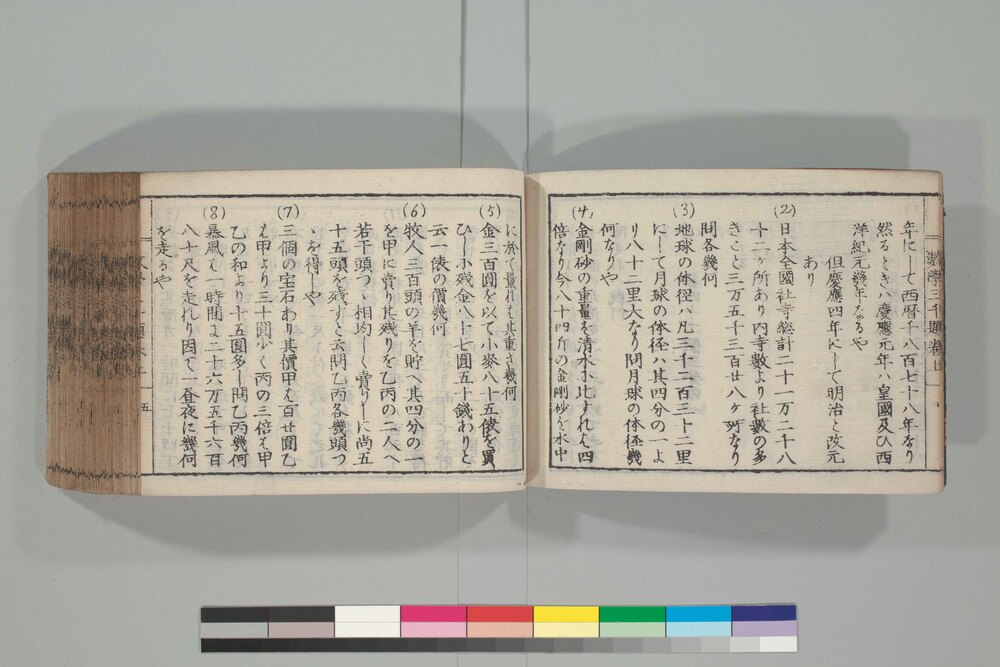 年にして西暦千八百七十八年なり
然るときハ慶應元年ハ皇國及ひ西
洋紀元幾年なるや
但慶應四年にして明治と改元
あり
(2)
日本全國社寺総計二十一万二千八
十二ヶ所あり内寺数より社数の多
きこと三万五千三百廿八ヶ所なり
問各幾何
(3)
地球の体径ハ凡三千二百三十二里
にして月球の体径ハ其四分の一よ
り八十二里大なり問月球の体径幾
何なりや
(4)
金剛砂の重量を清水に比すれは四
倍なり今八十四斤の金剛砂を水中
に於て量れは其重さ幾何
(5)
金三百圓を以て小麥八十五俵を買
ひし小残金八十七圓五十錢ありと
云一俵の價幾何
(6)
牧人三百頭の羊を貯へ其四分の一
を甲に賣り其残りを乙丙の二人へ
若干頭つゝ相均しく賣りしに尚五
十五頭を残すと云問乙丙各幾頭つ
ゝを得しや
(7)
三個の宝石あり其價甲は百廿圓乙
は甲より三十圓少く丙の三倍は甲
乙の和より十五圓多し問乙丙幾何
(8)
暴風は一時間に二十六万五千六百
八十尺を走れり因て一昼夜に幾何
を走るや
五